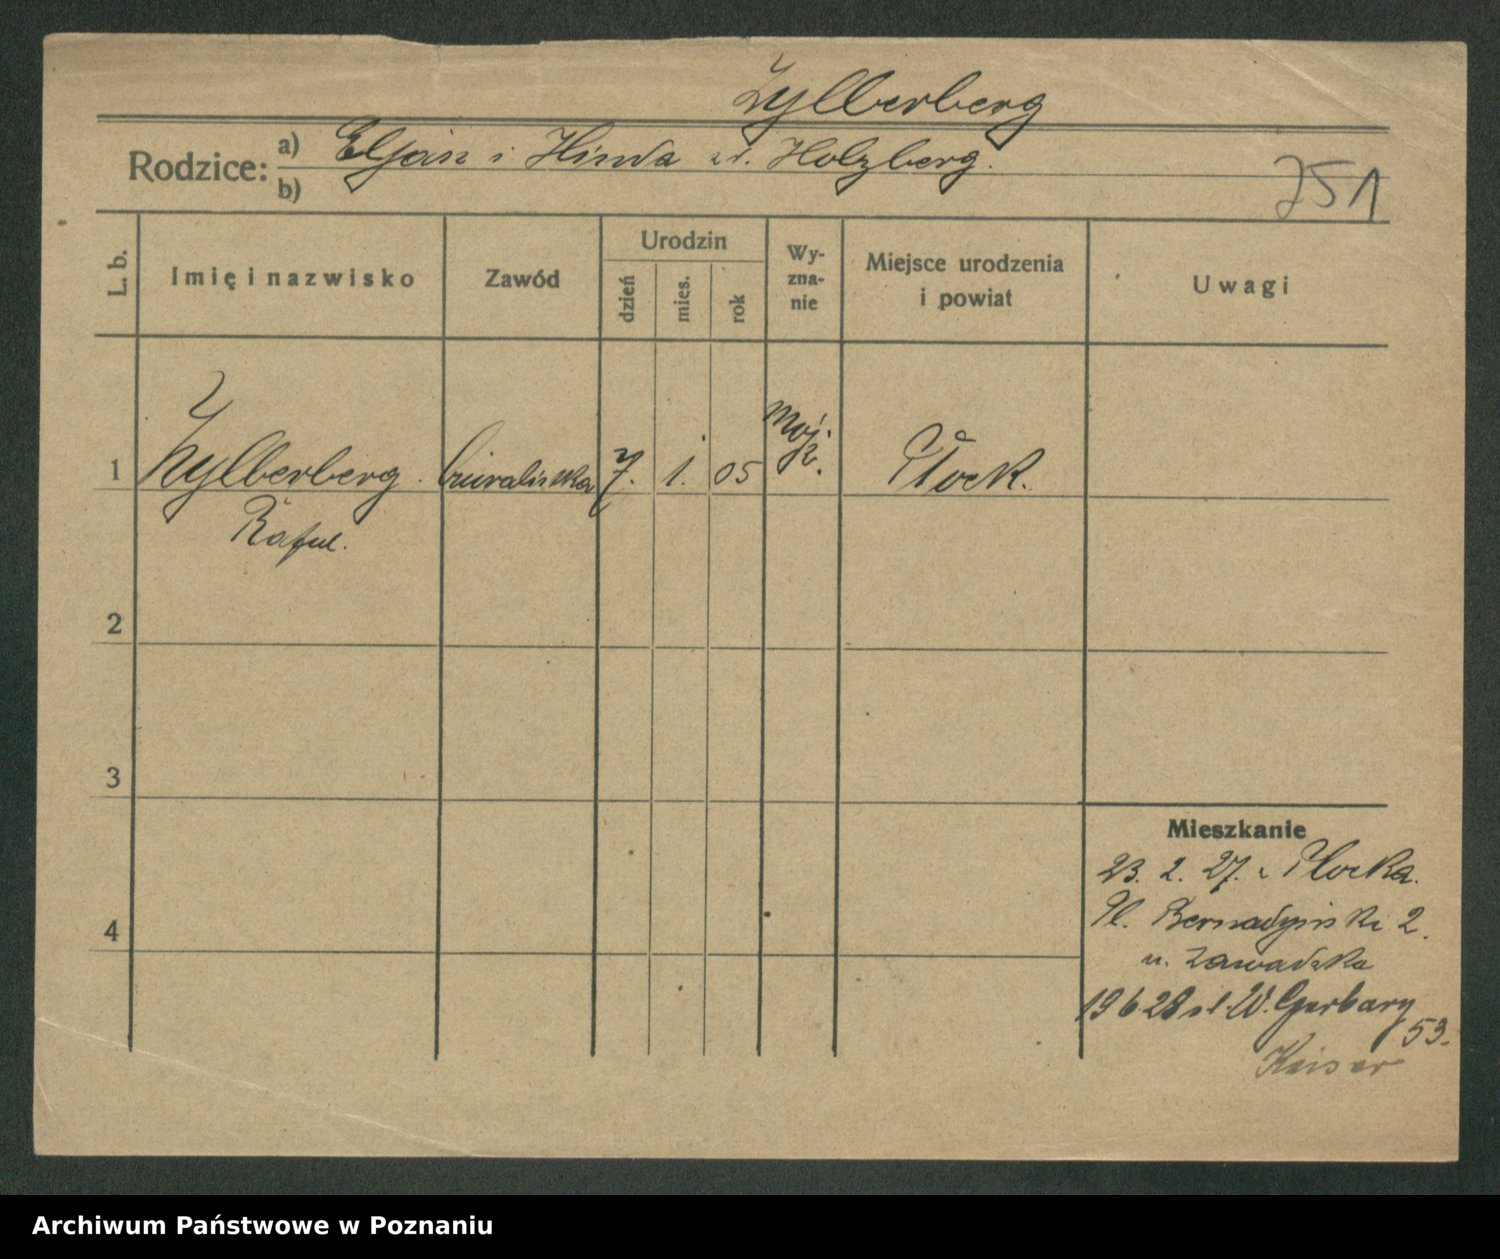 Zylberberg
Rodzice: a) Eljasz i Hinda z d. Holzberg.
b)
751
L. b.
Imię i nazwisko
Zawód
Urodzin
dzień
mies.
rok
Wy-
zna-
nie
Miejsce urodzenia
i powiat
Uwagi
1 Zylberberg biuralistka 7. 1. 05 mojż. Płock.
2
3
4
Mieszkanie
23. 2. 27. z Płocka.
Pl. Bernadyński 2.
u. Zawadzka
19 6 28 W. Garbary
53.
Kaiser
Archiwum Państwowe w Poznaniu